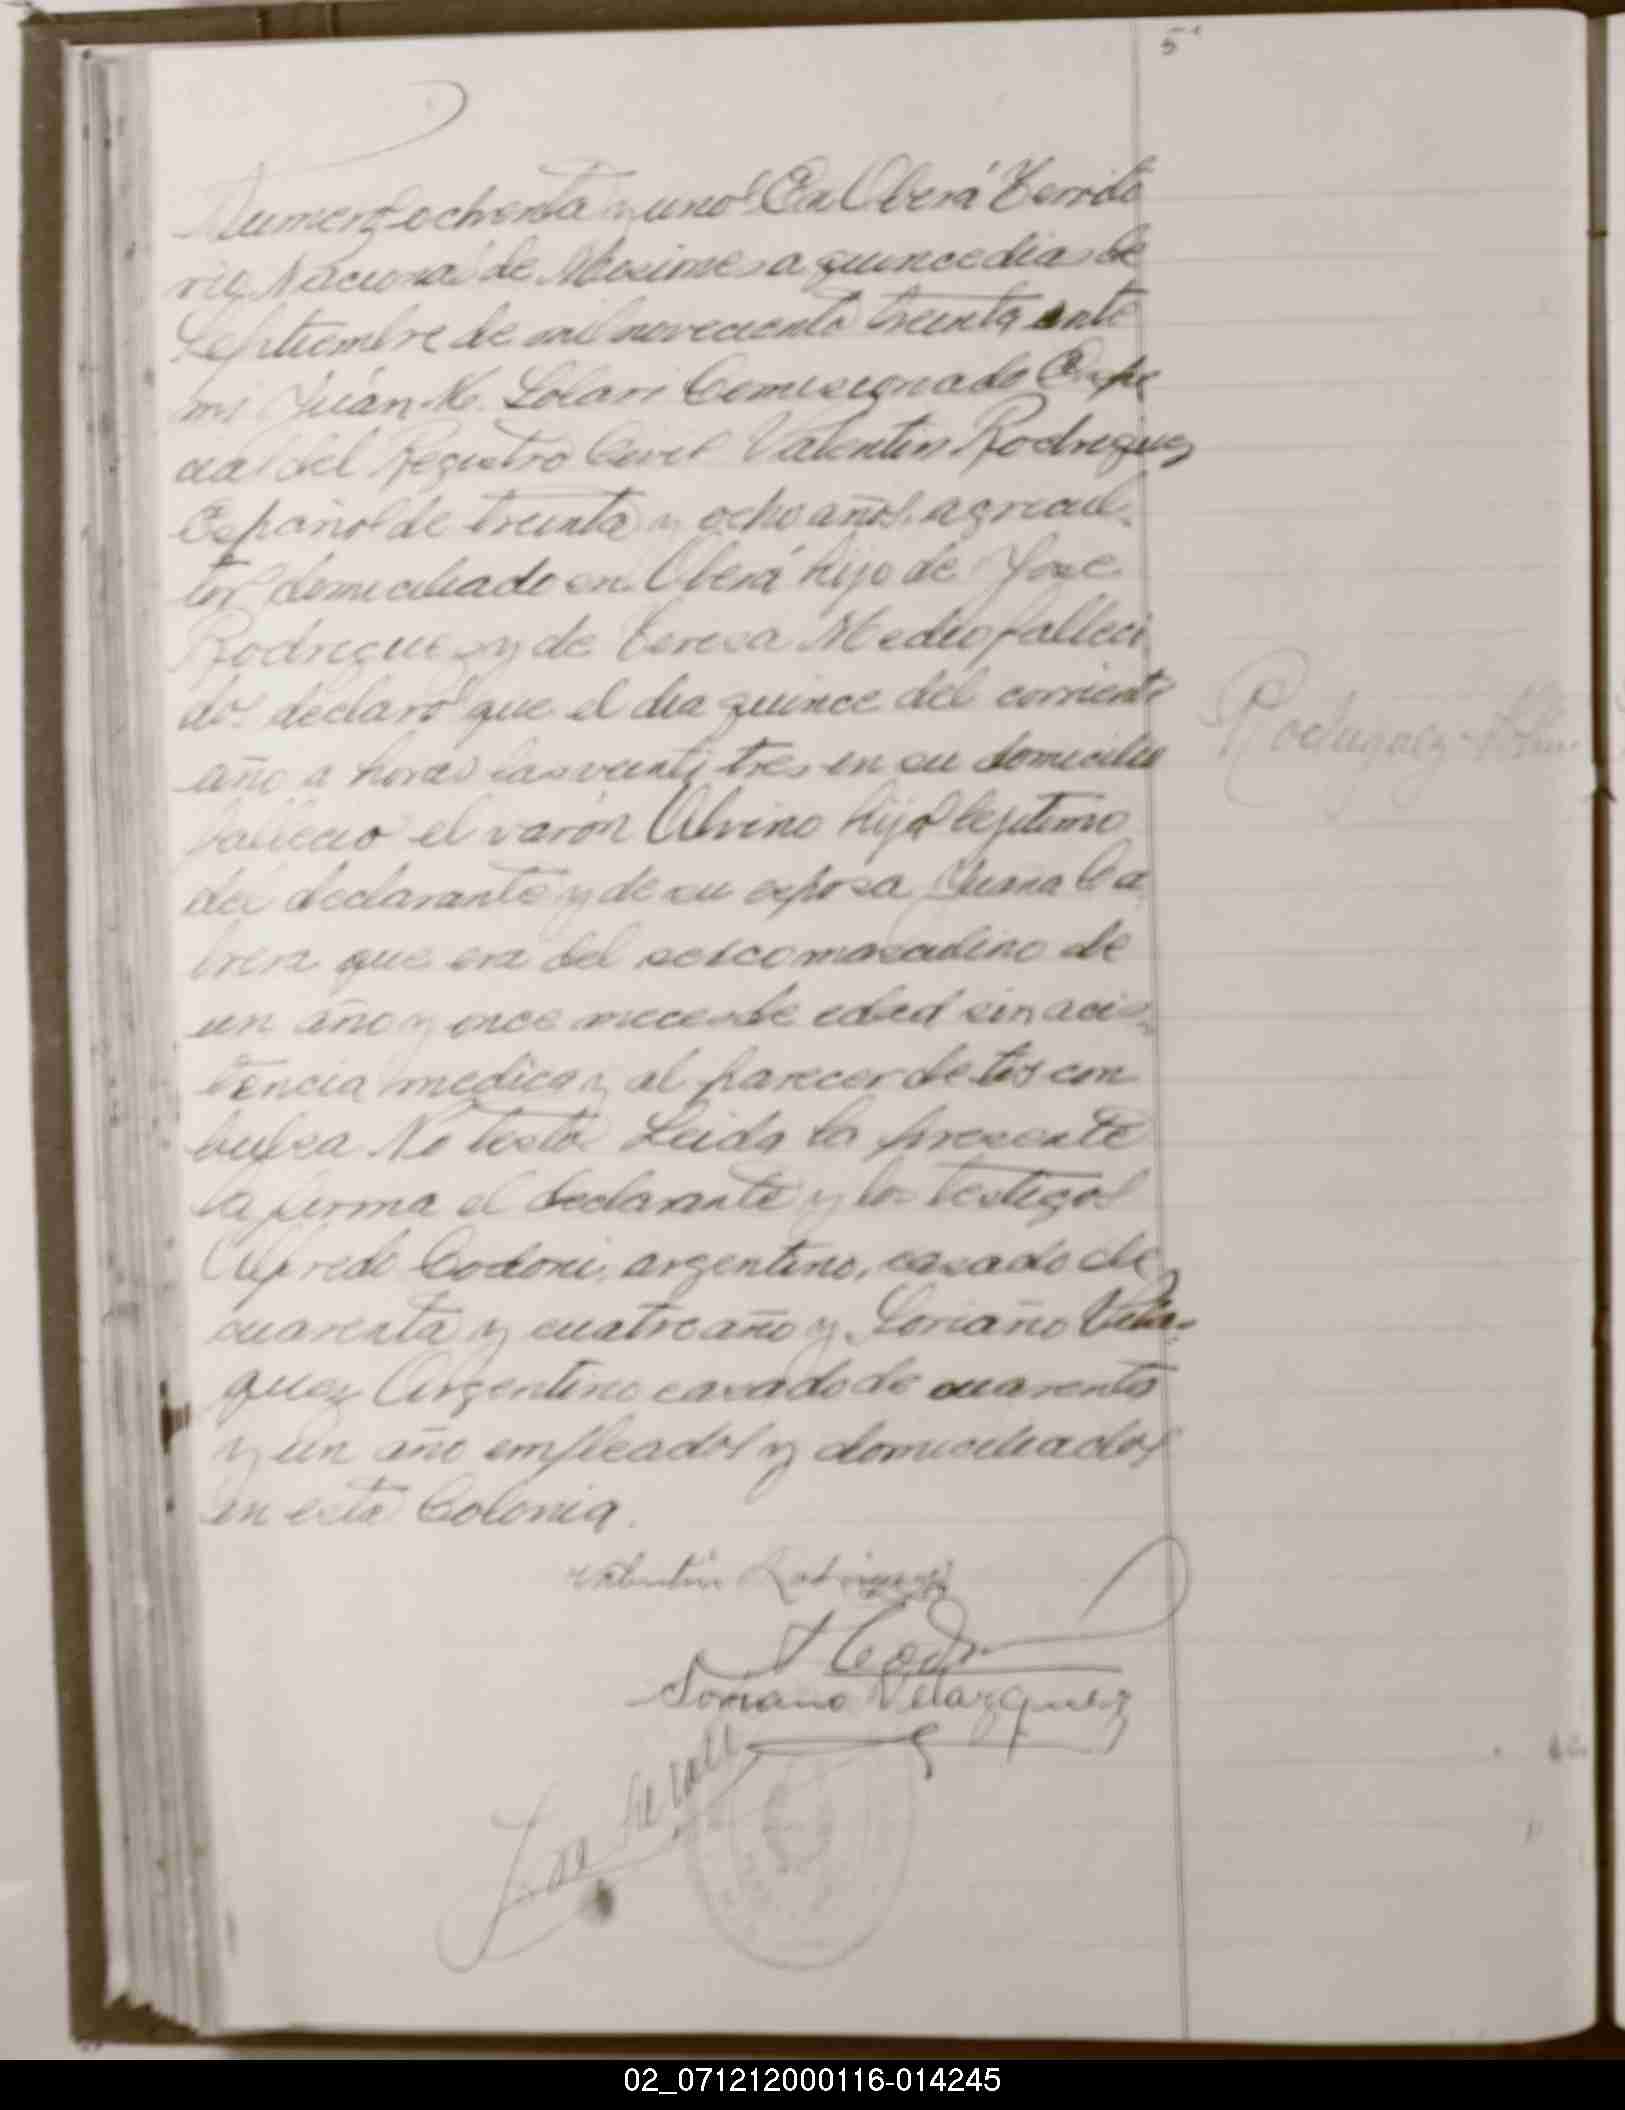 5
Numero ochenta y uno En Oberá Territo
rio Nacional de Misiones a quince dias de
Septiembre de mil novecientos treinta ante
mi Juán M. Solari Comisionado Espe
cial del Registro Civil Valentin Rodriguez
Español de treinta y ocho años, agricul
tor domiciliado en Oberá hijo de Jose
Rodriguez y de Teresa Medio falleci
dos declaró que el dia quince del corriente
año a horas las veinti tres en su domicilio
fallecio el varón Alvino hijo lejitimo
del declarante y de su esposa Juana Ca
brera que era del secso masculino de
un año y once meces de edad sin acis
tencia medica y al parecer de tos con
bulsa No testó Leida la presente
la firma el declarante y los testigos
Alfredo Codoni, argentino, casado de
cuarenta y cuatro año y Soriaño Velas
quez Argentino casado de cuarenta
y un año empleados y domiciliados
en esta Colonia.
Rodriguez
Valentin Rodriguez
Soriano Velazquez
02_071212000116-014245